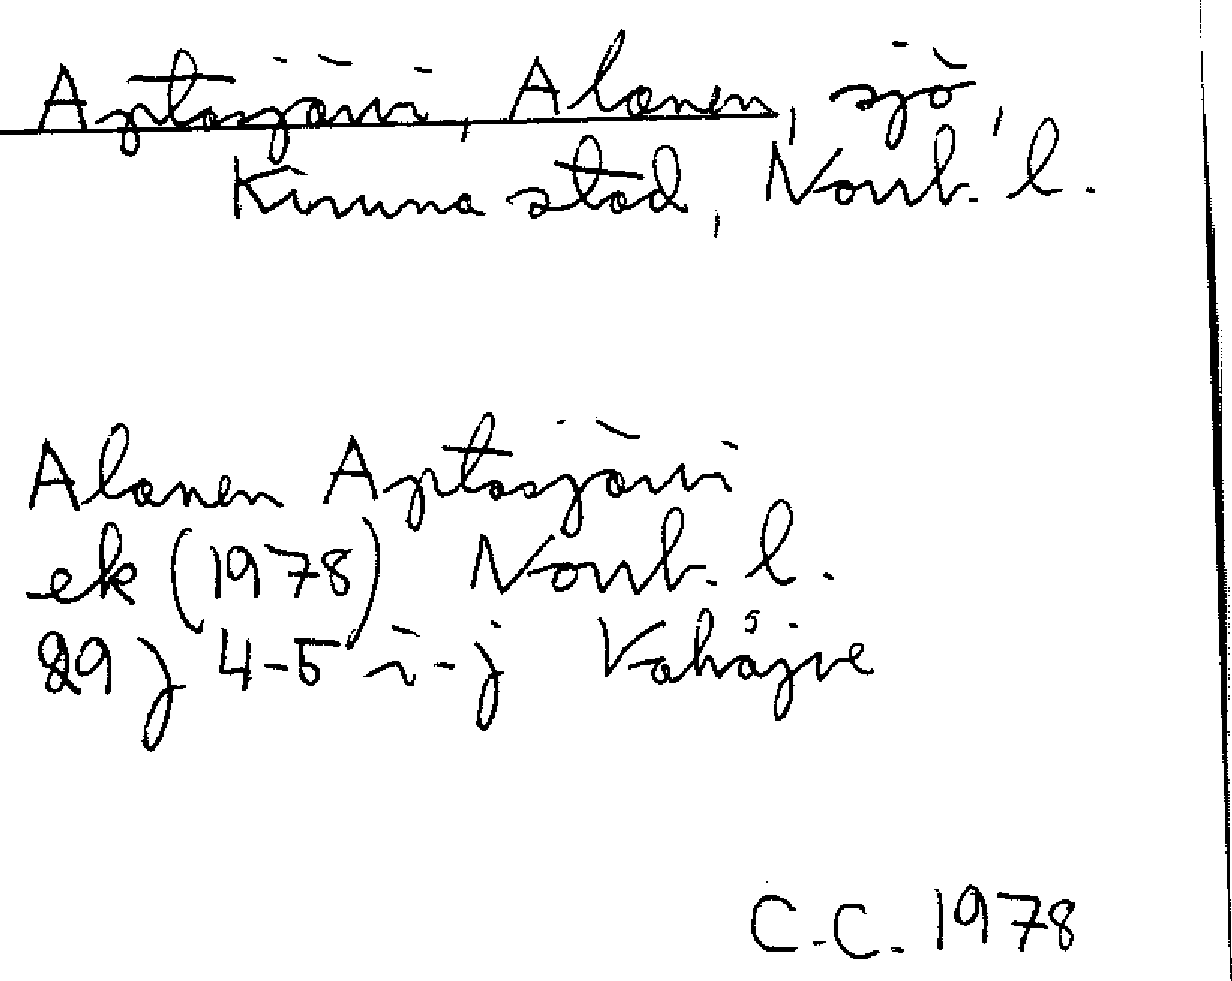 Aptasjärvi, Alanen, sjö,
Kiruna stad, Norrb. l.
Alanen Aptasjärvi
ek (1978) Norrb. l.
29 J 4-5 i-j Vahåive
C.C. 1978